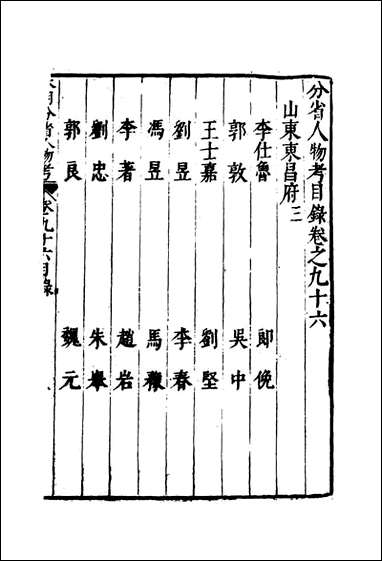 分省人物考目錄卷之九十六
山東東昌府三
李仕魯 郎俛
郭敦 吳中
王士嘉 劉堅
劉昱 李春
馮昱 馬
李著 趙岩
劉忠 朱
郭良 魏元
本朝分省人物考 卷九十六目錄